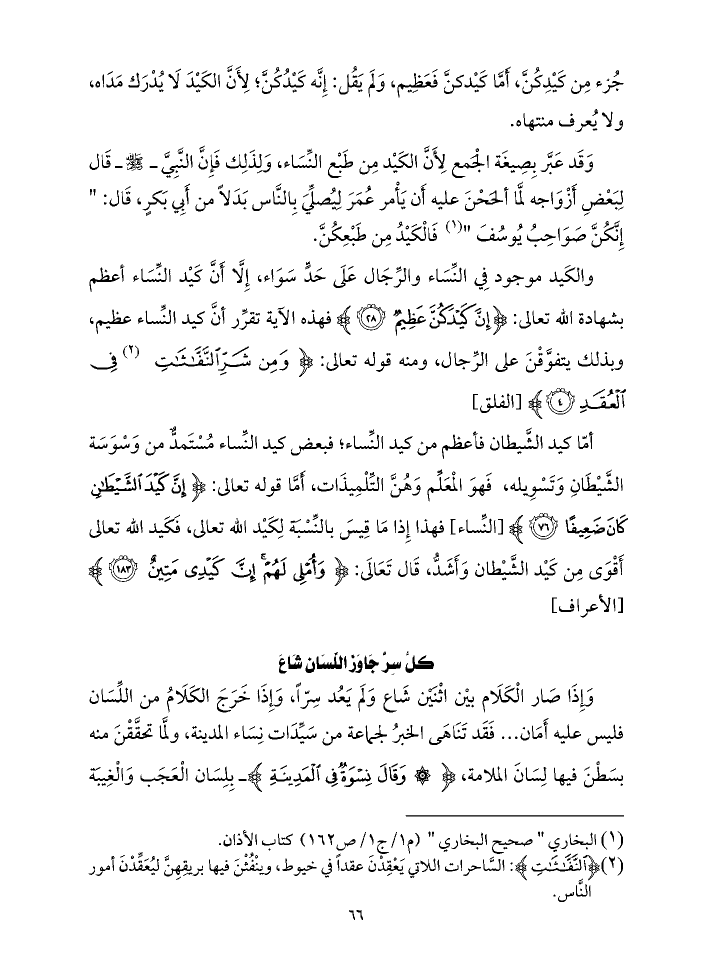 جُزء مِن كَيْدِكُنَّ، أَمَّا كَيْدكنَّ فَعَظِيم، وَلَم يَقُل: إِنَّه كَيْدُكُنَّ؛ لِأَنَّ الكَيْدَ لَا يُدْرَك مَدَاه،
ولا يُعرف منتهاه.
وَقَد عَبَّر بِصِيغَة الجَمع لِأَنَّ الكَيْد مِن طَبْع النِّسَاء، وَلِذَلِك فَإِنَّ النَّبِيَّ ـ ﷺ ـ قَال
لِبَعْضِ أَزْوَاجه لمَّا ألحَحْنَ عليه أَن يَأْمر عُمَرَ لِيُصلِّيَ بِالنَّاس بَدَلاً من أَبِي بَكرٍ، قَال: "
إِنَّكُنَّ صَوَاحِبُ يُوسُفَ "(١) فَالْكَيْدُ مِن طَبْعِكُنَّ.
والكَيد موجود فِي النِّسَاء والرِّجَال عَلَى حَدٍّ سَوَاء، إِلَّا أَنَّ كَيْد النِّسَاء أعظم
بشهادة الله تعالى: ﴿ إِنَّ كَيْدَكُنَّ عَظِيمٌ ٢٨ ﴾ فهذه الآية تقرِّر أنَّ كيد النِّساء عظيم،
وبذلك يتفوَّقْنَ على الرِّجال، ومنه قوله تعالى: ﴿ وَمِن شَرِّ ٱلنَّفَّـٰثَـٰتِ (٢) فِى
ٱلْعُقَدِ ٤ ﴾ [الفلق]
أمّا كيد الشَّيطان فأعظم من كيد النِّساء؛ فبعض كيد النِّساء مُسْتَمدٌّ من وَسْوَسَة
الشَّيْطَانِ وَتَسْوِيله، فَهوَ المُعَلِّم وَهُنَّ التِّلْمِيذَات، أَمَّا قوله تعالى: ﴿ إِنَّ كَيْدَ ٱلشَّيْطَـٰنِ
كَانَ ضَعِيفًا ٧٦ ﴾ [النِّساء] فهذا إِذَا مَا قِيسَ بالنِّسْبَة لِكَيْد الله تعالى، فَكَيد الله تعالى
أَقْوَى مِن كَيْد الشَّيْطان وَأَشدُّ، قَال تَعَالَى: ﴿ وَأُمْلِى لَهُمْ ۚ إِنَّ كَيْدِى مَتِينٌ ١٨٣ ﴾
[الأعراف]
كلُّ سِرٍّ جَاوَزَ اللِّسَان شَاعَ
وَإِذَا صَار الْكَلَام بيْن اثْنَيْن شَاع وَلَم يَعُد سِرّاً، وَإِذَا خَرَجَ الكَلَامُ من اللِّسَان
فليس عليه أَمَان... فَقَد تَنَاهَى الخبرُ لجماعة من سَيِّدَات نِسَاء المدينة، ولمَّا تحقَّقْنَ منه
بسَطْنَ فيها لِسَانَ الملامة، ﴿ ۞ وَقَالَ نِسْوَةٌ فِى ٱلْمَدِينَةِ ﴾ـ بِلِسَان الْعَجَب وَالْغِيبَة
(١) البخاري " صحيح البخاري " (م١/ ج١/ ص١٦٢) كتاب الأذان.
(٢) ﴿ٱلنَّفَّـٰثَـٰتِ ﴾: السَّاحرات اللاتي يَعْقِدْنَ عقداً في خيوط، وينْفُثْنَ فيها بريقِهِنَّ ليُعَقِّدْنَ أمور
النَّاس.
٦٦